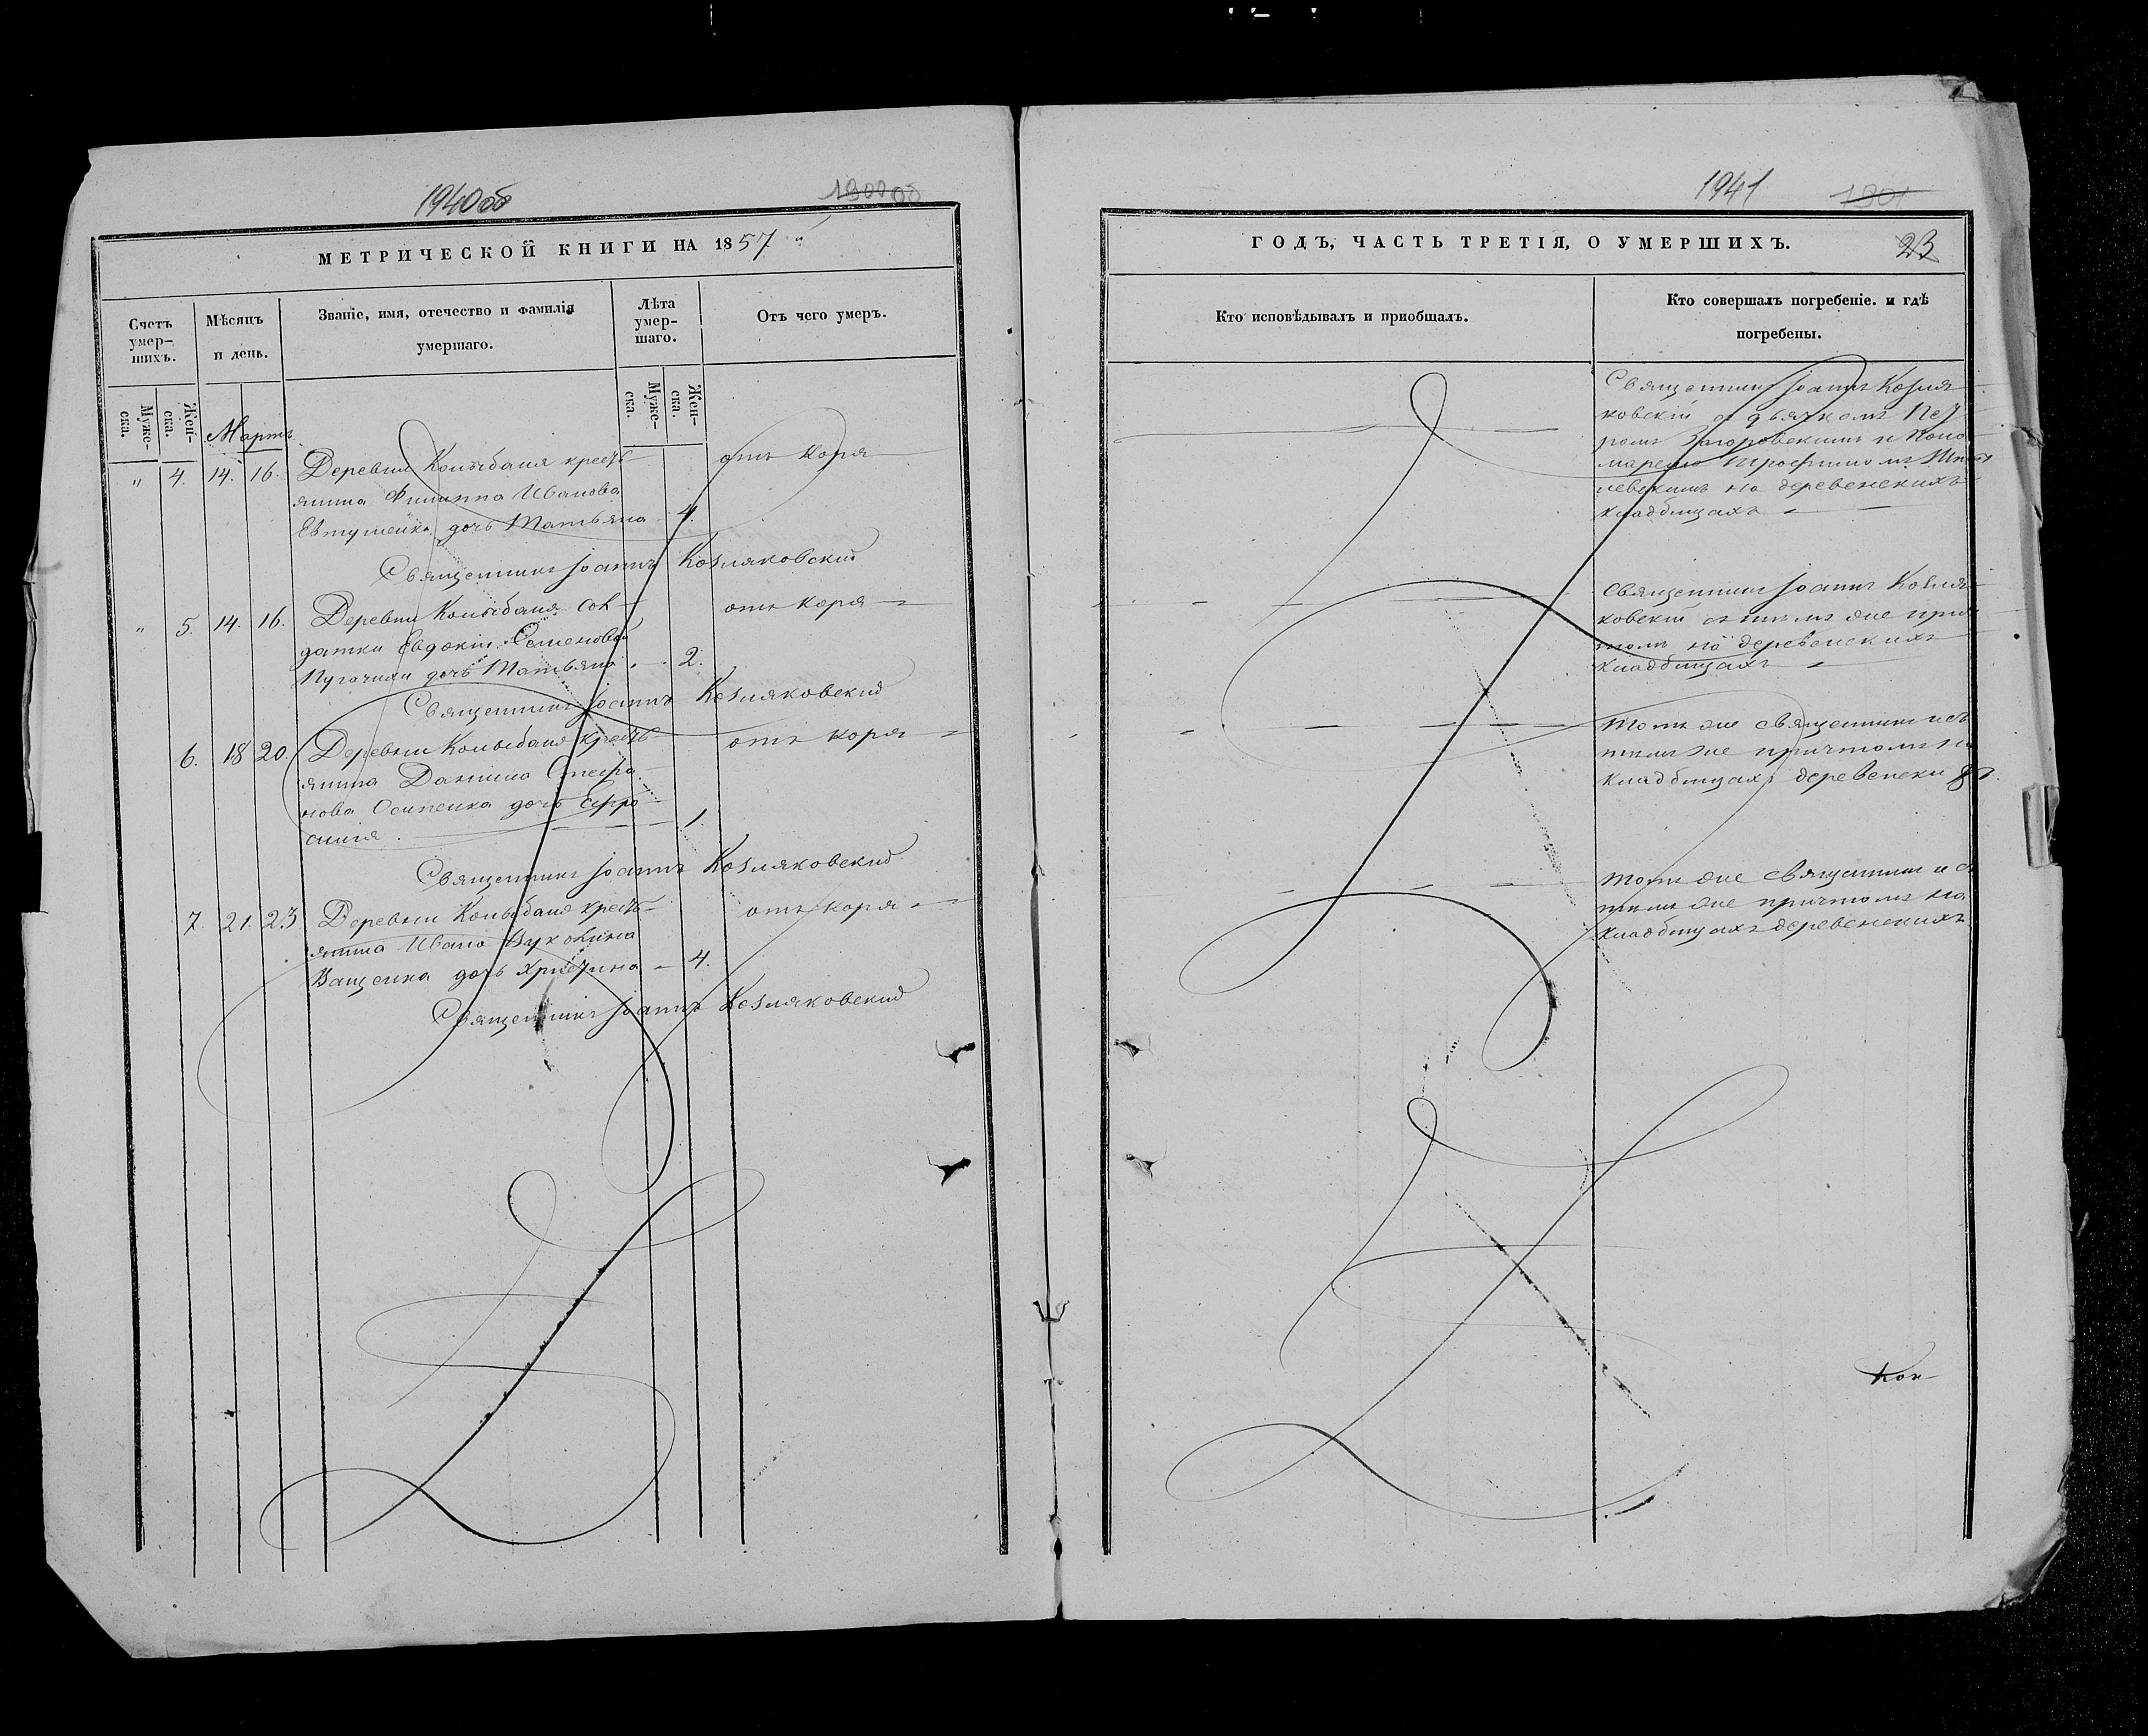 1940об
1900об
МЕТРИЧЕСКОЙ КНИГИ НА 1857
Счетъ умер-шихъ.
Мѣсяцъ и день.
Званіе, имя, отечество и фамилія умершаго.
Лѣта умер-шаго.
Отъ чего умеръ.
Муже-ска.
Жен-ска.
Муже-ска.
Жен-ска.
Мартъ
" 4. 14. 16. Деревни Колыбаня кресть-
янина Филиппа Иванова
Евтушенка дочь Татьяна 4. отъ коря
Священникъ Іоаннъ Козляковский
" 5. 14. 16. Деревни Колыбаня Сол-
датки Евдокіи Семеновой
Пугачихи дочь Татьяна 2. отъ коря
Священникъ Іоаннъ Козляковский
6. 18 20. Деревни Колыбаня кресть-
янина Даниила Стефа-
нова Осипенка дочь Ефро-
синія 1. отъ коря
Священникъ Іоаннъ Козляковский
7. 21. 23 Деревни Колыбаня кресть-
янина Ивана
Ващенка дочь Христина 4. отъ коря
Священникъ Іоаннъ Козляковский
1941
1901
ГОДЪ, ЧАСТЬ ТРЕТІЯ, О УМЕРШИХЪ.
23
Кто исповѣдывалъ и пріобщалъ.
Кто совершалъ погребеніе. и гдѣ
погребены.
Священникъ Іоаннъ Козля-
ковскій съ дьячкомъ Пет-
ромъ Загоровскимъ и Поно-
маремъ Трофимомъ
на деревенскихъ
кладбищахъ
Священникъ Іоаннъ Козля-
ковскій съ тѣмъ же при-
томъ на деревенскихъ
кладбищахъ
Тотъ же священникъ съ
тѣмъ же причтомъ на
кладбищахъ деревенскихъ
Тотъ же священникъ и съ
тѣмъ же причтомъ на
кладбищахъ деревенскихъ